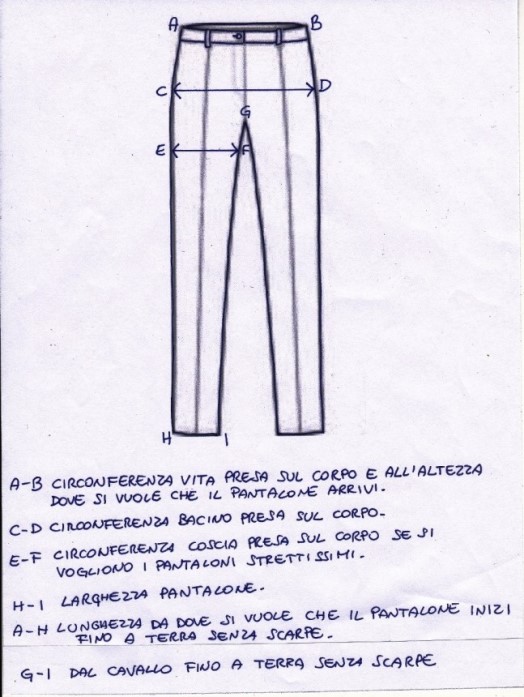 A B
C D
G
E F
H I
A-B CIRCONFERENZA VITA PRESA SUL CORPO E ALL'ALTEZZA
DOVE SI VUOLE CHE IL PANTALONE ARRIVI.
C-D CIRCONFERENZA BACINO PRESA SUL CORPO.
E-F CIRCONFERENZA COSCIA PRESA SUL CORPO SE SI
VOGLIONO I PANTALONI STRETTISSIMI.
H-I LARGHEZZA PANTALONE.
A-H LUNGHEZZA DA DOVE SI VUOLE CHE IL PANTALONE INIZI
FINO A TERRA SENZA SCARPE.
G-I DAL CAVALLO FINO A TERRA SENZA SCARPE